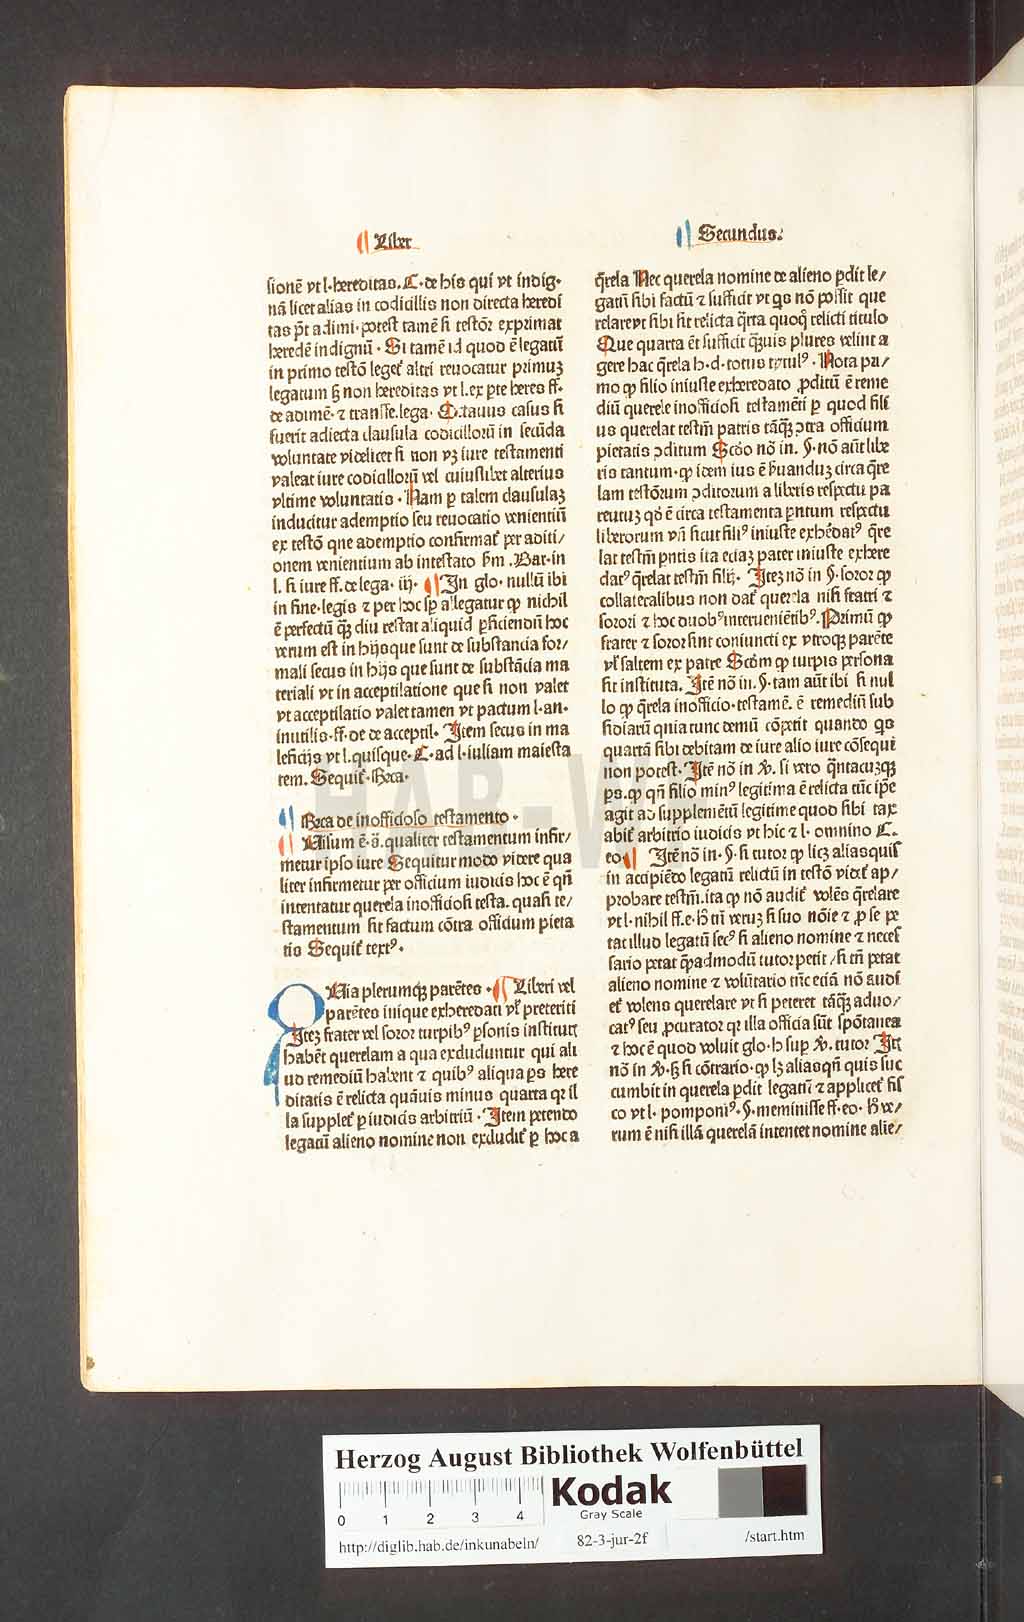 Liber
Secundus.
sionē vt l. hereditas. C. de his qui vt indig-
nā licet alias in codicillis non directa heredi
tas p̄t adimi. potest tamē si testōr exprimat
heredē indignū. Si tamē id quod ē legatū
in primo testō leget᷑ altri reuocatur primuꝫ
legatum ꝫ non hereditas vt l. ex ꝑte heres ff.
de adimē. ⁊ transfe. lega. Octauus casus si
fuerit adiecta clausula codicillorū in secūda
voluntate videlicet si non vꝫ iure testamenti
valeat iure codicillorū vel cuiuslibet alterius
vltime voluntatis. Nam ꝑ talem clausulaꝫ
inducitur ademptio seu reuocatio venientiū
ex testō que ademptio confirmat᷑ per aditi/
onem venientium ab intestato ẜm. Bar. in
l. si iure ff. de lega. iij. In glo. nullū ibi
in fine. legis ⁊ per hoc sꝑ allegatur ꝙ nichil
ē perfectū qꝫ diu restat aliquid ꝑficiendū hoc
verum est in hijs que sunt de substantia for/
mali secus in hijs que sunt de substācia ma
teriali vt in acceptilatione que si non valet
vt acceptilatio valet tamen vt pactum l. an.
inutilis. ff. de de acceptil. Item secus in ma
leficijs vt l. quisque. C. ad l. iuliam maiesta
tem. Sequit᷑. Bꝛca.
Bꝛca de inofficioso testamento.
Uisum ē. s̄. qualiter testamentum infir/
metur ipso iure Sequitur modo videre qua
liter infirmetur per officium iudicis hoc ē qn̄
intentatur querela inofficiosi testa. quasi te/
stamentum sit factum cōtra officium pieta
tis Sequit᷑ textꝰ.
QUia plerumqꝫ parētes. Liberi vel
parētes inique exheredati vl᷑ preteriti
Iteꝫ frater vel soror turpibꝰ ꝑsonis institutꝭ
habēt querelam a qua excluduntur qui ali
ud remediū habent ⁊ quibꝰ aliqua ps here
ditatis ē relicta quāuis minus quarta qꝛ il
la supplet᷑ ꝑ iudicis arbitriū. Item petendo
legatū alieno nomine non excludit᷑ ꝑ hoc a
q̄rela Nec querela nomine de alieno ꝑdit le/
gatū sibi factū ⁊ sufficit vt qs nō possit que
relare vt sibi sit relicta q̄rta quoqꝫ relicti titulo
Que quarta ēt sufficit qꝫuis plures velint a
gere hac q̄rela h. d. totus tytulꝰ. Nota pa/
mo ꝙ filio iniuste exheredato ꝓditū ē reme
diū querele inofficiosi testamēti ꝑ quod fili
us querelat testm̄ patris tāqꝫ ꝯtra officium
pietatis ꝯditum Scd̄o nō in. §. nō aūt libe
ris tantum. ꝙ idem ius ē ẜuanduꝫ circa q̄re
lam testōrum ꝯditorum a liberis respectu pa
rentuꝫ qd̄ ē circa testamenta ꝑntum respectu
liberorum vn̄ sicut filiꝰ iniuste exhēdatꝰ q̄re
lat testm̄ pntis ita eciaꝫ pater iniuste exhere
datꝰ q̄relat testm̄ filij. Iteꝫ nō in §. soror ꝙ
collateralibus non dat᷑ querela nisi fratri ⁊
sorori ⁊ hoc duobꝰ interuenīetibꝰ. Primū ꝙ
frater ⁊ soror sint coniuncti ex vtroqꝫ parēte
vl᷑ saltem ex patre Scd̄m ꝙ turpis persona
sit instituta. Itē nō in. §. tam aūt ibi si nul
lo ꝙ q̄rela inofficio. testamē. ē remediū sub
sidiariū quia tunc demū cōpetit quando qs
quartā sibi debitam de iure alio iure cōsequi
non potest. Itē nō in ꝟ. si vero q̄ntacuꝫqꝫ
ps. ꝙ qn̄ filio minꝰ legitima ē relicta tūc ip̄e
agit ad supplemētū legitime quod sibi tax
abit᷑ arbitrio iudicis vt hic ⁊ l. omnino C.
eo Itē nō in. §. si tutor ꝙ licꝫ alias quis
in accipiēdo legatū relictū in testō videt᷑ ap/
probare testm̄. ita ꝙ nō audit᷑ volēs q̄relare
vt l. nihil ff. e. hō tn̄ veruꝫ si suo nōie ⁊ ꝓ se pe
tat illud legatū secꝰ si alieno nomine ⁊ necef
sario petat qꝫadmodū tutor petit/ si tn̄ petat
alieno nomine ⁊ volūtario tūc eciā nō audi
et᷑ volens querelare vt si peteret tāqꝫ aduo/
catꝰ seu ꝓcurator qꝛ illa officia sūt spōtanea
⁊ hoc ē quod voluit glo. h sup ꝟ. tutor Itē
nō in ꝟ. ꝫ si cōtrario. ꝙ lꝫ alias qn̄ quis suc
cumbit in querela ꝑdit legatū ⁊ applicet᷑ fis
co vt l. pomponiꝰ. §. meminisse ff. eo. hō ve/
rum ē nisi illā querelā intentet nomine alie/
HAB-WF
Herzog August Bibliothek Wolfenbüttel
0 1 2 3 4
Kodak
Gray Scale
http://diglib.hab.de/inkunabeln/ 82-3-jur-2f /start.htm